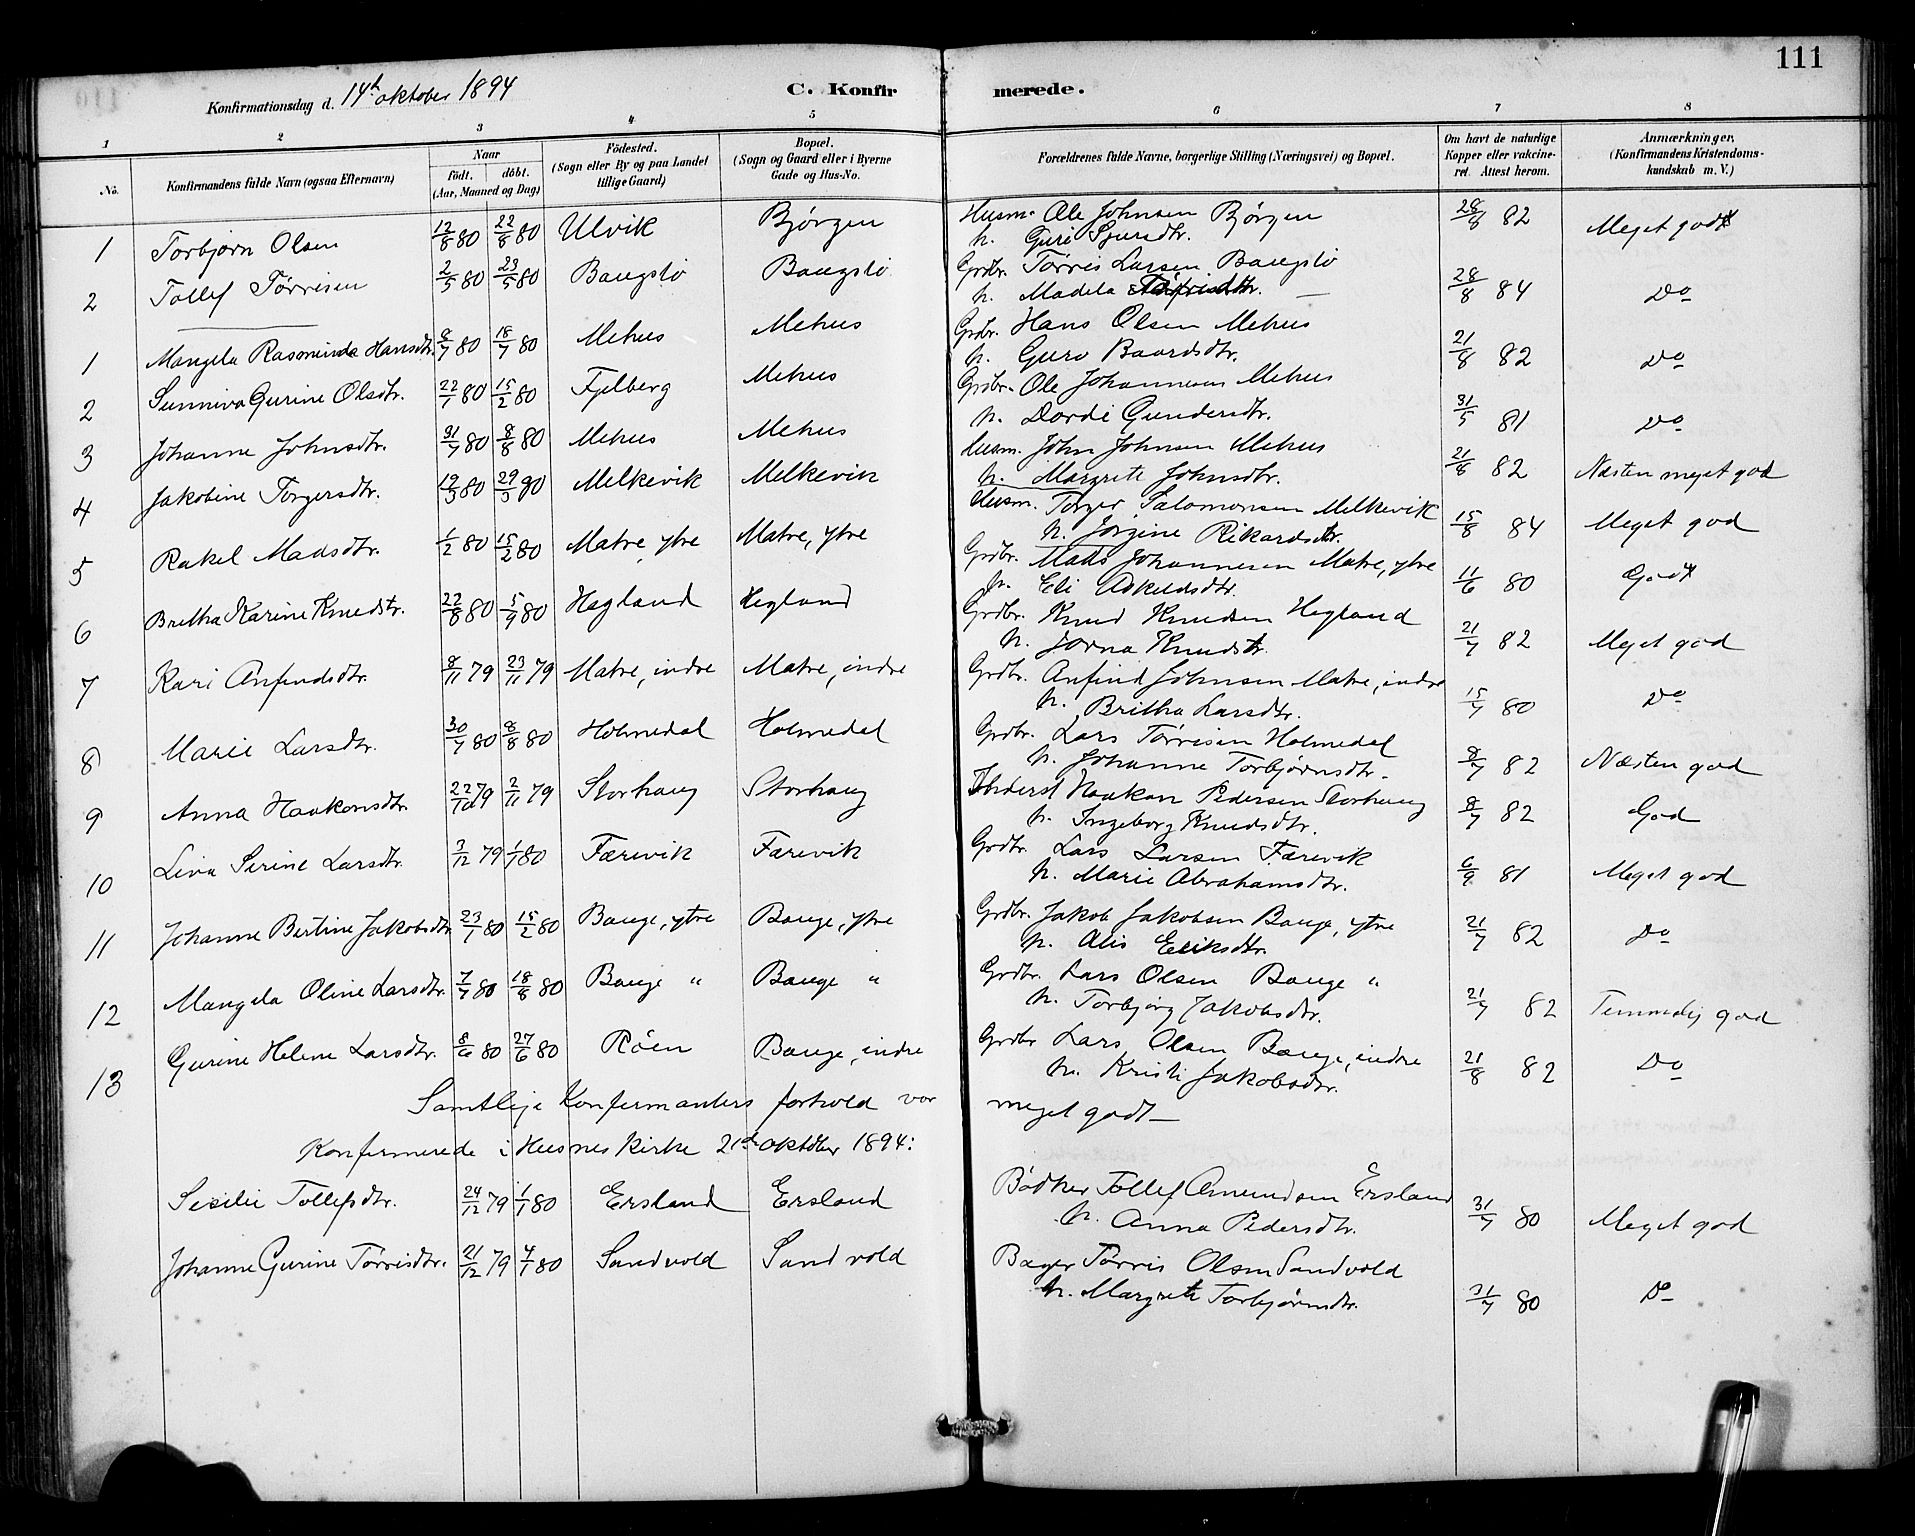 111
Konfirmationsdag d. 14de oktober 1894 C. Konfirmerede.
1 2 3 4 5 6 7 8
No. Konfirmandens fulde Navn (ogsaa Efternavn) Naar født. døbt. (Aar, Maaned og Dag) Fødested. (Sogn eller By og paa Landet tillige Gaard) Bopæl. (Sogn og Gaard eller i Byerne Gade og Hus-No. Forældrenes fulde Navne, borgerlige Stilling (Næringsvei) og Bopæl. Om havt de naturlige Kopper eller vaccineret. Attest herom. Anmærkninger, (Konfirmandens Kristendomskundskab m. V.)
1 Torbjørn Olsen 12/8 80 22/8 80 Ulvik Bjørgen Husm. Ole Johnsen Bjørgen 28/8 82 Meget godt
h. Guri Sjursdtr.
2 Tollef Tørrisen 2/5 80 23/5 80 Baugstø Baugstø Grdbr. Tørris Larsen Baugstø 28/8 84 Do
h. Madela
1 Mangela Rasminda Hansdtr. 8/7 80 18/7 80 Mehus Mehus Grdbr. Hans Olsen Mehus 21/8 82 Do
h. Guro Baardsdtr.
2 Sunniva Gurine Olsdtr. 22/1 80 15/2 80 Fjelberg Mehus Grdbr. Ole Johannesen Mehus 31/5 81 Do
h. Dordi Gundersdtr.
3 Johanne Johnsdtr. 31/7 80 8/8 80 Mehus Mehus Husm. John Johnsen Mehus 21/8 82 Næsten meget god
h. Margrete Johnsdtr.
4 Jakobine Torgersdtr. 12/3 80 29/3 90 Melkevik Melkevik Husm. Torger Salomonsen Melkevik 15/8 84 Meget god
h. Jorgine Rikardsdtr.
5 Rakel Madsdtr. 1/2 80 15/2 80 Matre, ytre Matre, ytre Grdbr. Mads Johannesen Matre, ytre 11/6 80 Godt
h. Eli Askeldsdtr.
6 Britha Karine Knudstr. 22/8 80 5/9 80 Høgland Høgland Grdbr. Knud Knudsen Høgland 21/7 82 Meget god
h. Jorna Knudstr.
7 Kari Anfindsdtr. 8/11 79 23/11 79 Matre, indre Matre, indre Grdbr. Anfind Johnsen Matre, indre 15/7 80 Do
h. Britha Larsdtr.
8 Marie Larsdtr. 30/7 80 8/8 80 Holmedal Holmedal Grdbr. Lars Tørrisen Holmedal 8/7 82 Næsten god
h. Johanne Torbjørnsdtr.
9 Anna Haakonsdtr. 22/10 79 2/11 79 Storhaug Storhaug Haakon Pedersen Storhaug 8/7 82 God
h. Ingeborg Knudsdtr.
10 Lina Serine Larsdtr. 3/12 79 1/1 80 Færevik Færevik Grdbr. Lars Larsen Færevik 6/9 81 Meget god
h. Marie Abrahamsdtr.
11 Johanne Bertine Jakobsdtr 23/1 80 15/2 80 Bauge, ytre Bauge, ytre Grdbr. Jakob Jakobsen Bauge, ytre 21/7 82 Do
h. Alis Eriksdtr.
12 Mangela Oline Larsdtr. 7/7 80 18/8 80 Bauge " Bauge " Grdbr. Lars Olsen Bauge " 21/7 82 Temmelig god
h. Torbjørg Jakobsdtr.
13 Gurine Helene Larsdtr. 8/6 80 27/6 80 Røen Bauge, indre Grdbr Lars Olsen Bauge, indre 21/8 82 Do
h. Kristi Jakobsdtr.
Samtlige Konfirmanters forhold var meget godt –
Konfirmerede i Husnes Kirke 21de oktober 1894:
Sesilie Tollefsdtr. 24/12 79 1/1 80 Ersland Ersland Bødker Tollef Amundsen Ersland 31/7 80 Meget god
h. Anna Pedersdtr.
Johanne Gurine Tørrisdtr. 21/12 79 4/1 80 Sandvold Sandvold Bager Tørris Olsen Sandvold 31/7 80 Do
h. Margrete Torbjørnsdtr.